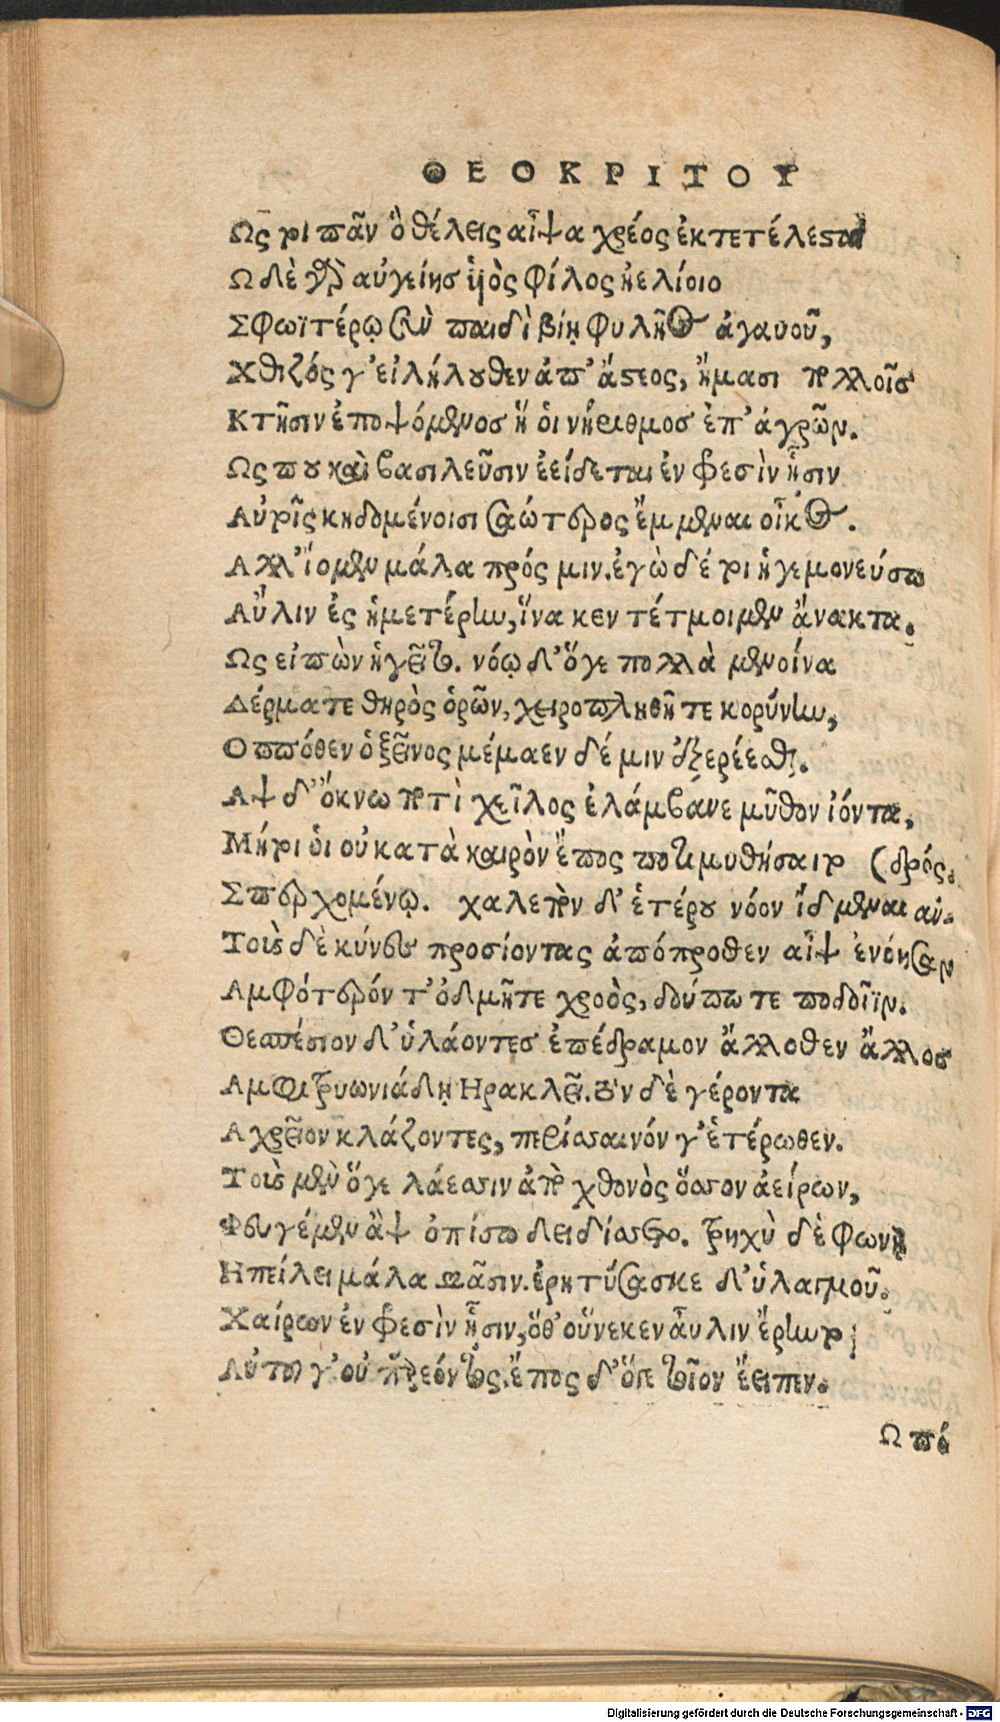 ΘΕΟΚΡΙΤΟΥ
Ως τι παν ὃ θέλεις αἶψα χρέος ἐκτετέλεσται
Ωδὲ γὰρ αὐγείης ὑιὸς φίλος ἠελίοιο
Σφωϊτέρῳ σὺν παιδὶ βίῃ φυλῆος ἀγαυοῦ,
Χθιζός γ’ εἰλήλουθεν ἀπ’ ἄστεος, ἤμασι πολλοῖς
Κτῆσιν ἐποψόμενος ἥ ὁι νήριθμος ἐπ’ ἀγρῶν.
Ως που καὶ βασιλεῦσιν ἐείδεται ἐν φρεσὶν ᾗσιν
Αὐτοῖς κηδομένοισι σαώτερος ἔμμεναι οἶκος.
Αλλ’ ἴομεν μάλα πρός μιν. ἐγὼ δέ τοι ἡγεμονεύσω
Αὖλιν ἐς ἡμετέρην, ἵνα κεν τέτμοιμεν ἄνακτα.
Ως εἰπὼν ἡγεῖτο. νόῳ δ’ ὅγε πολλὰ μενοίνα
Δέρμα τε θηρὸς ὁρῶν, χειροπληθῆ τε κορύνην,
Οππόθεν ὁ ξεῖνος μέμαεν δέ μιν ἐξερέεσθαι.
Αψ δ’ ὄκνῳ ποτὶ χεῖλος ἐλάμβανε μῦθον ἰόντα,
Μήτι ὁι οὐ κατὰ καιρὸν ἔπος ποτιμυθήσαιτο (δρός.
Σπερχομένῳ. χαλεπὸν δ’ ἑτέρου νόον ἴδμεναι αν-
Τοὺς δὲ κύνες προσιόντας ἀπόπροθεν αἶψ’ ἐνόησαν
Αμφότερόν τ’ ὀδμῇ τε χροὸς, δούπω τε ποδοῖϊν.
Θεσπέσιον δ’ ὑλάοντες ἐπέδραμον ἄλλοθεν ἄλλος
Αμφιτρυωνιάδῃ Ηρακλεῖ. τὸν δὲ γέροντα
Αχρεῖον κλάζοντες, περίσσαινόν γ’ ἑτέρωθεν.
Τοὺς μὲν ὅγε λάεσσιν ἀπὸ χθονὸς ὅσσον ἀείρων,
Φευγέμεν ἂψ ὀπίσω δειδίσσετο. τρηχὺ δὲ φωνῇ
Ηπείλει μάλα πᾶσιν. ἐρητύσασκε δ’ ὑλαγμοῦ.
Χαίρων ἐν φρεσὶν ᾗσιν, ὅθ’ οὕνεκεν αὖλιν ἔρυντο
Αὐτοῦ γ’ οὐ παρεόντος. ἔπος δ’ ὅγε τοῖον ἔειπεν.
Ω πό
Digitalisierung gefördert durch die Deutsche Forschungsgemeinschaft - DFG